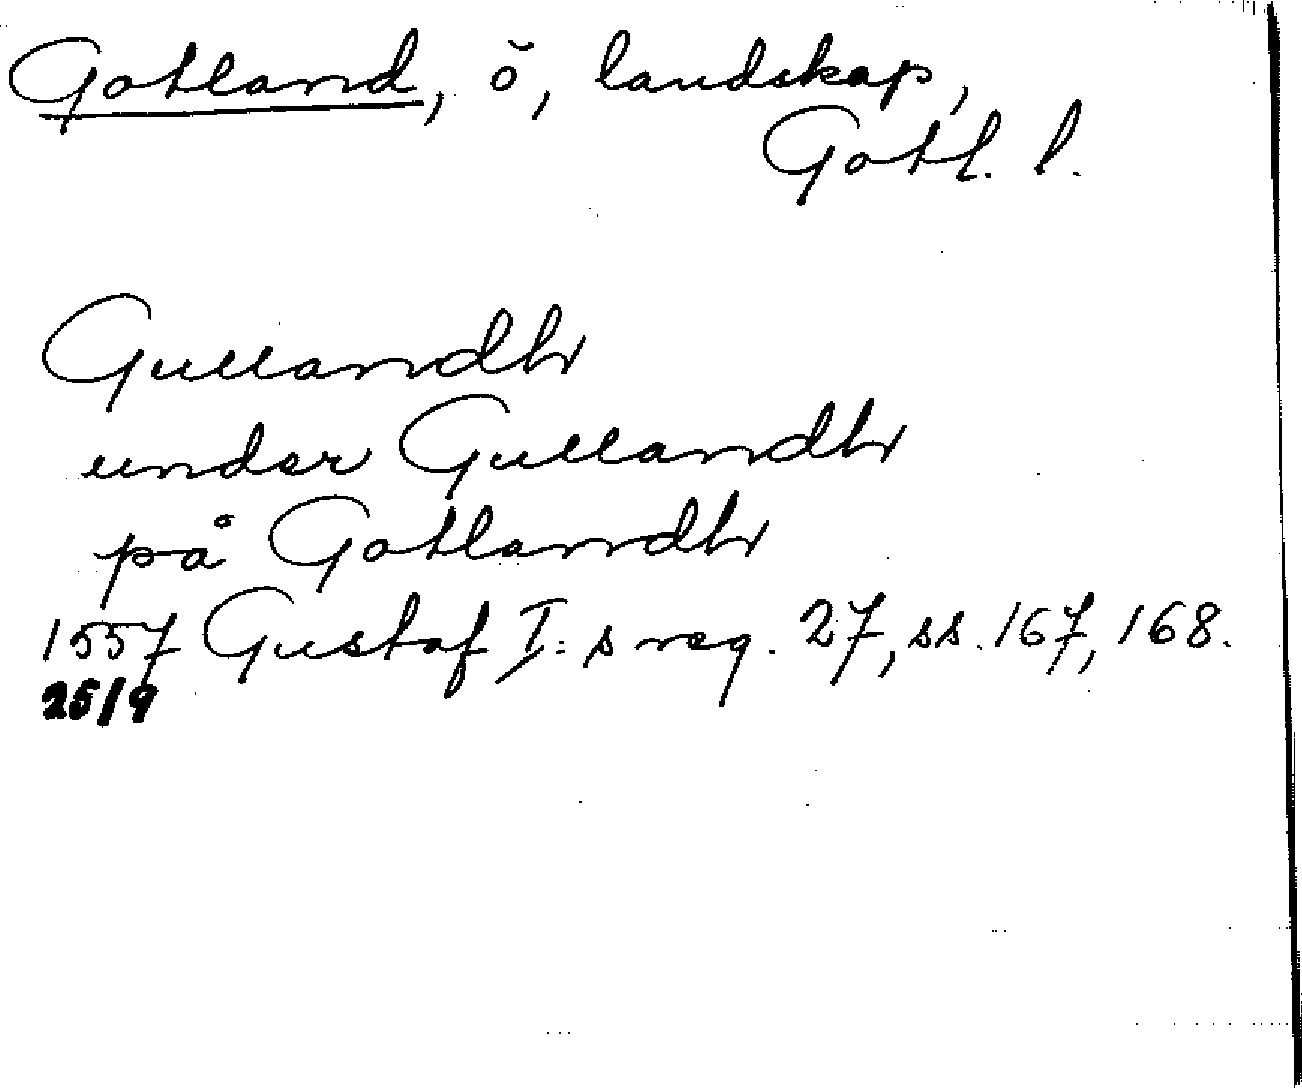 Gotland, ö, landskap,
Gotl. l.
Gullandh
under Gullandh
på Gotlandh
1557 Gustaf I:s reg. 27, ss. 167, 168.
25/9